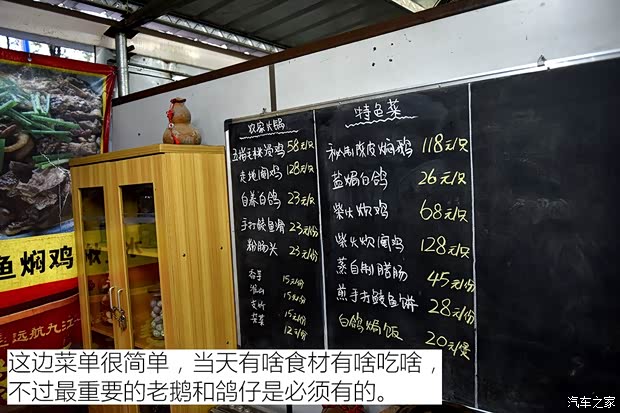 农家火锅
五指毛桃滑鸡 58元/只
走地阉鸡 128元/只
白卷白鸽 23元/只
手打鲮鱼滑 23元/份
粉肠头 23元/份
香芋 15元/份
淮山 15元/份
支竹 15元/份
12元/份
特色菜
秘制陈皮焖鹅 118元/只
盐焗白鸽 26元/只
柴火炊鸡 68元/只
柴火炊阉鸡 128元/只
蒸自制腊肠 45元/份
煎手打鲮鱼饼 28元/份
白鸽焗饭 20元/煲
鱼焖鸡
远航九江
这边菜单很简单，当天有啥食材有啥吃啥，
不过最重要的老鹅和鸽仔是必须有的。
汽车之家